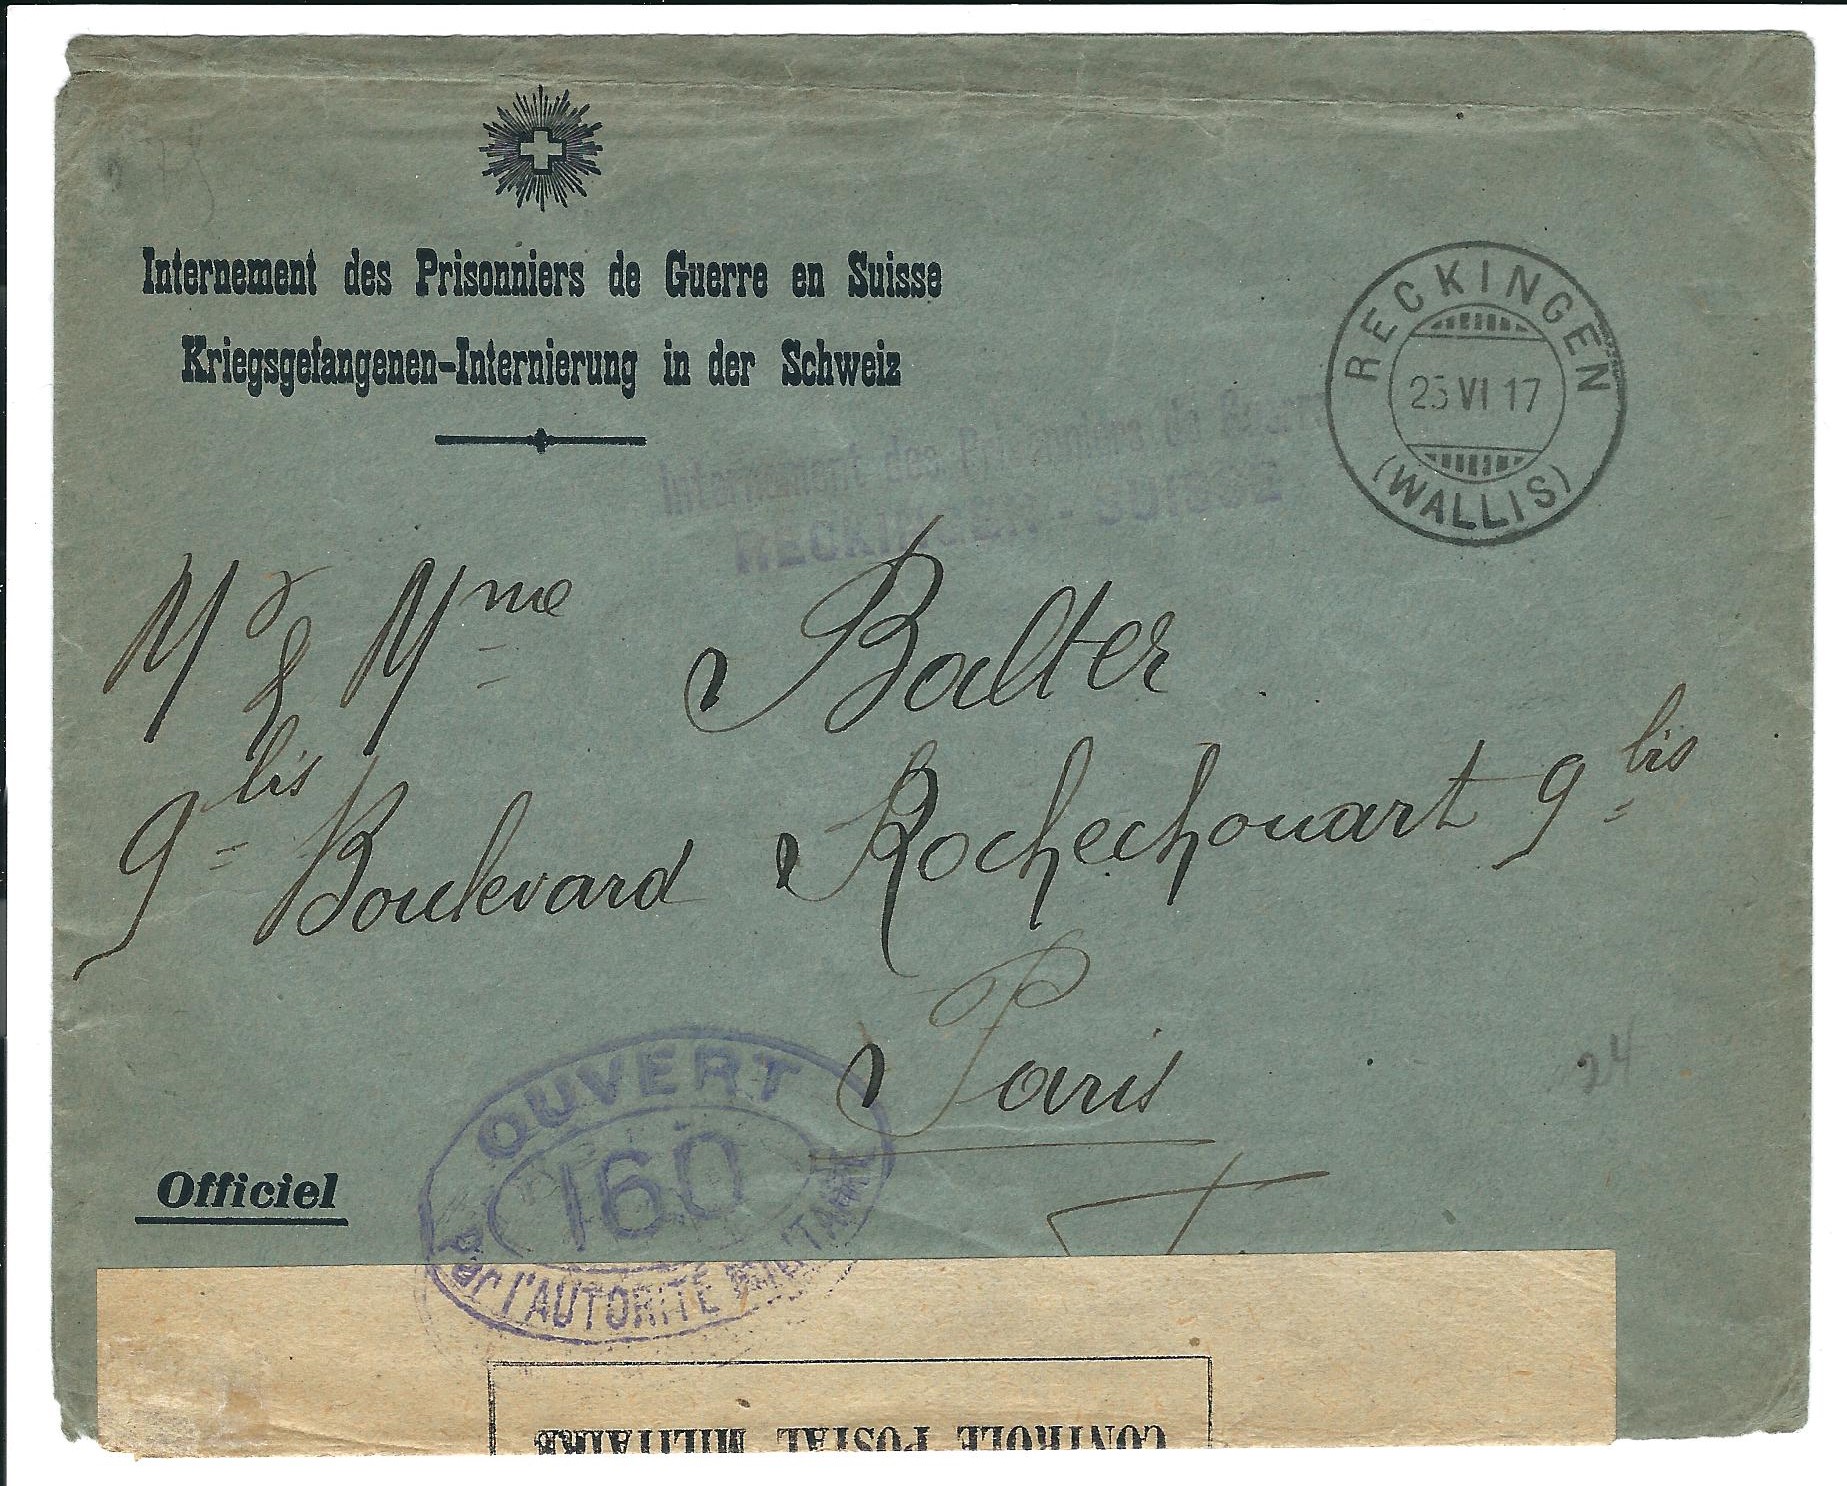 Internement des Prisonniers de Guerre en Suisse
Kriegsgefangenen-Internierung in der Schweiz
RECKINGEN
25 VI 17
(WALLIS)
Internement des Prisonniers de Guerre
RECKINGEN - SUISSE
Mr & Mme Balter
9 bis Boulevard Rochechouart 9 bis
Paris
24
OUVERT
160
Par l'AUTORITÉ MILITAIRE
Officiel
CONTROLE POSTAL MILITAIRE